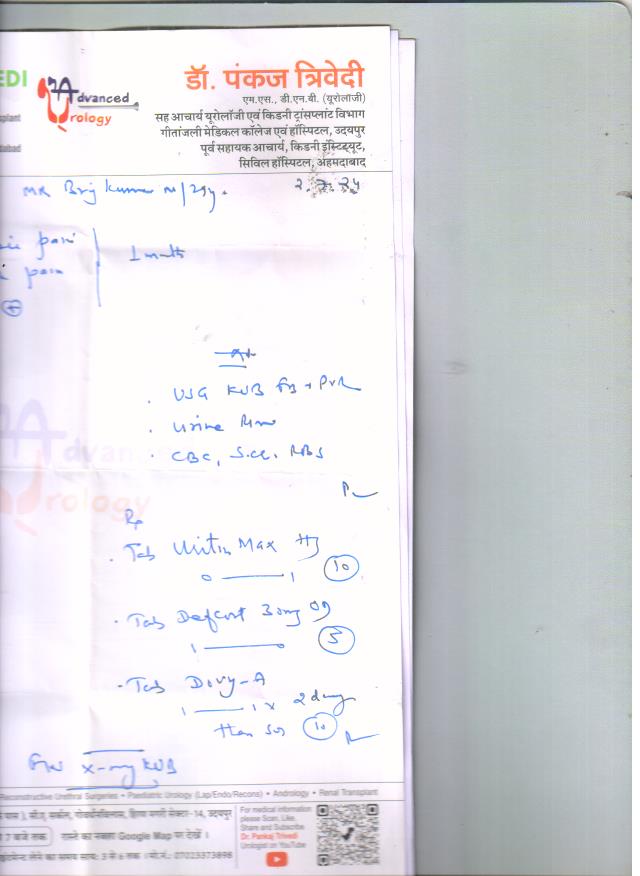 EDI
Advanced
Urology
डॉ. पंकज त्रिवेदी
एम.एस., डी.एन.बी. (यूरोलॉजी)
सह आचार्य यूरोलॉजी एवं किडनी ट्रांसप्लांट विभाग
गीतांजली मेडिकल कॉलेज एवं हॉस्पिटल, उदयपुर
पूर्व सहायक आचार्य, किडनी इंस्टिट्यूट,
सिविल हॉस्पिटल, अहमदाबाद
splant
abad
MR Brij Kumar M/29y.
pain
pain
1 month
USG KUB + PVR
Urine
CBC, S.Cr. RBS
Rx
Tab Max
0 — 1 10
Tab Defcort 30mg OD
1 — 0 5
Tab Dovy-A
1 — 1 x 2 days
then SOS 10
X-ray KUB
Reconstructive Urethral Surgeries • Paediatric Urology (Lap/Endo/Recons) • Andrology • Renal Transplant
सेक्टर-14, उदयपुर
7 बजे तक रास्ते का नक्शा Google Map पर देखें ।
लेने का समय सायः 3 से 6 तक । मो.नं.: 07023373898
For medical information
please Scan, Like,
Share and Subscribe
Dr. Pankaj Trivedi
Urologist on YouTube